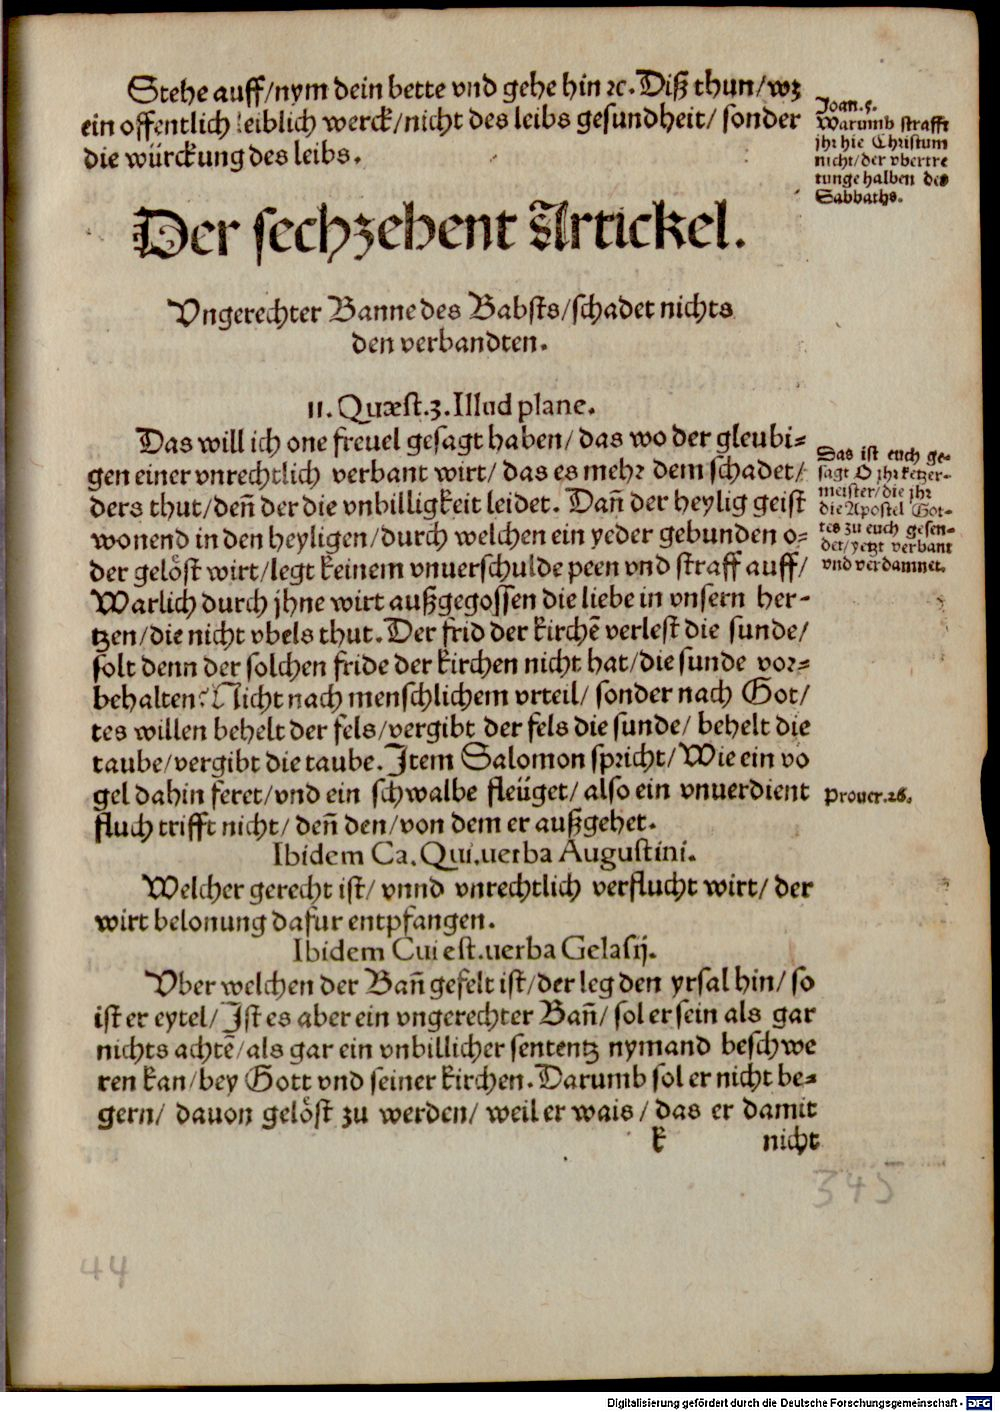 Stehe auff/nym dein bette vnd gehe hin ꝛc. Diß thun/wz
ein offentlich leiblich werck/nicht des leibs gesundheit/ sonder
die würckung des leibs.
Joan. 5.
Warumb strafft
jhr hie Christum
nicht/der vbertre
tunge halben des
Sabbaths.
Der sechzehent Artickel.
Vngerechter Banne des Babsts/schadet nichts
den verbandten.
11. Quæst. 3. Illud plane.
Das will ich one freuel gesagt haben/ das wo der gleubi⸗
gen einer vnrechtlich verbant wirt/ das es mehr dem schadet/
ders thut/deñ der die vnbilligkeit leidet. Dañ der heylig geist
wonend in den heyligen/durch welchen ein yeder gebunden o⸗
der gelöst wirt/legt keinem vnuerschulde peen vnd straff auff/
Warlich durch jhne wirt außgegossen die liebe in vnsern her-
tzen/die nicht vbels thut. Der frid der kirchē verlest die sunde/
solt denn der solchen fride der kirchen nicht hat/die sunde vor⸗
behalten? Nicht nach menschlichem vrteil/ sonder nach Got/
tes willen behelt der fels/vergibt der fels die sunde/ behelt die
taube/vergibt die taube. Jtem Salomon spricht/ Wie ein vo
gel dahin feret/vnd ein schwalbe fleüget/ also ein vnuerdient
fluch trifft nicht/ deñ den/von dem er außgehet.
Das ist euch ge-
sagt O jhr ketzer-
meister/die jhr
die Apostel Got-
tes zu euch gesen-
det/yetzt verbant
vnd verdamnet.
Prouer. 26.
Ibidem Ca. Qui. uerba Augustini.
Welcher gerecht ist/ vnnd vnrechtlich verflucht wirt/ der
wirt belonung dafur entpfangen.
Ibidem Cui est. uerba Gelasij.
Vber welchen der Bañ gefelt ist/der leg den yrsal hin/ so
ist er eytel/ Jst es aber ein vngerechter Bañ/ sol er sein als gar
nichts achtē/als gar ein vnbillicher sententz nymand beschwe
ren kan/bey Gott vnd seiner kirchen. Darumb sol er nicht be⸗
gern/ dauon gelöst zu werden/ weil er wais/ das er damit
k nicht
345
44
Digitalisierung gefördert durch die Deutsche Forschungsgemeinschaft - DFG